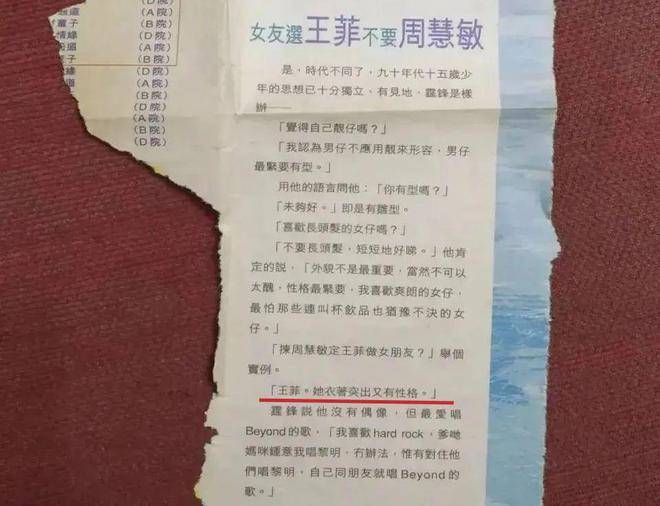 (D院)
童子
(A院)
情緣
(B院)
(A院)
(B院)
(D院)
(A院)
(B院)
(D院)
(A院)
(B院)
(D院)
女友選王菲不要周慧敏
是，時代不同了，九十年代十五歲少
年的思想已十分獨立，有見地，霆鋒是樣
辦——
「覺得自己靚仔嗎？」
「我認為男仔不應用靚來形容，男仔
最緊要有型。」
用他的語言問他：「你有型嗎？」
「未夠好。」即是有雛型。
「喜歡長頭髮的女仔嗎？」
「不要長頭髮，短短地好睇。」他肯
定的説，「外貌不是最重要，當然不可以
太醜，性格最緊要，我喜歡爽朗的女仔，
最怕那些連叫杯飲品也猶豫不決的女
仔。」
「揀周慧敏定王菲做女朋友？」舉個
實例。
「王菲。她衣著突出又有性格。」
霆鋒説他沒有偶像，但最愛唱
Beyond的歌，「我喜歡hard rock，爹哋
媽咪鍾意我唱黎明，冇辦法，惟有對住他
們唱黎明，自己同朋友就唱Beyond的
歌。」